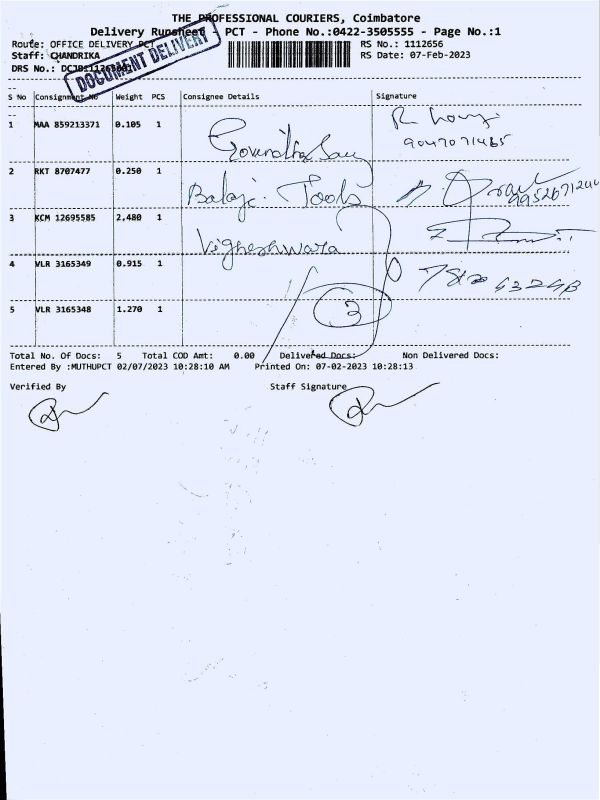 THE PROFESSIONAL COURIERS, Coimbatore
Delivery Runsheet - PCT - Phone No.:0422-3505555 - Page No.:1
Route: OFFICE DELIVERY PCT
RS No.: 1112656
Staff: CHANDRIKA
RS Date: 07-Feb-2023
DRS No.:
DOCUMENT DELIVERY
S No Consignment No Weight PCS Consignee Details Signature
1 MAA 859213371 0.105 1
9047071465
2 RKT 8707477 0.250 1 Balaji Tools
3 KCM 12695585 2.480 1 Vigheshwara
4 VLR 3165349 0.915 1
3
5 VLR 3165348 1.270 1
Total No. Of Docs: 5 Total COD Amt: 0.00 Delivered Docs: Non Delivered Docs:
Entered By :MUTHUPCT 02/07/2023 10:28:10 AM Printed On: 07-02-2023 10:28:13
Verified By Staff Signature